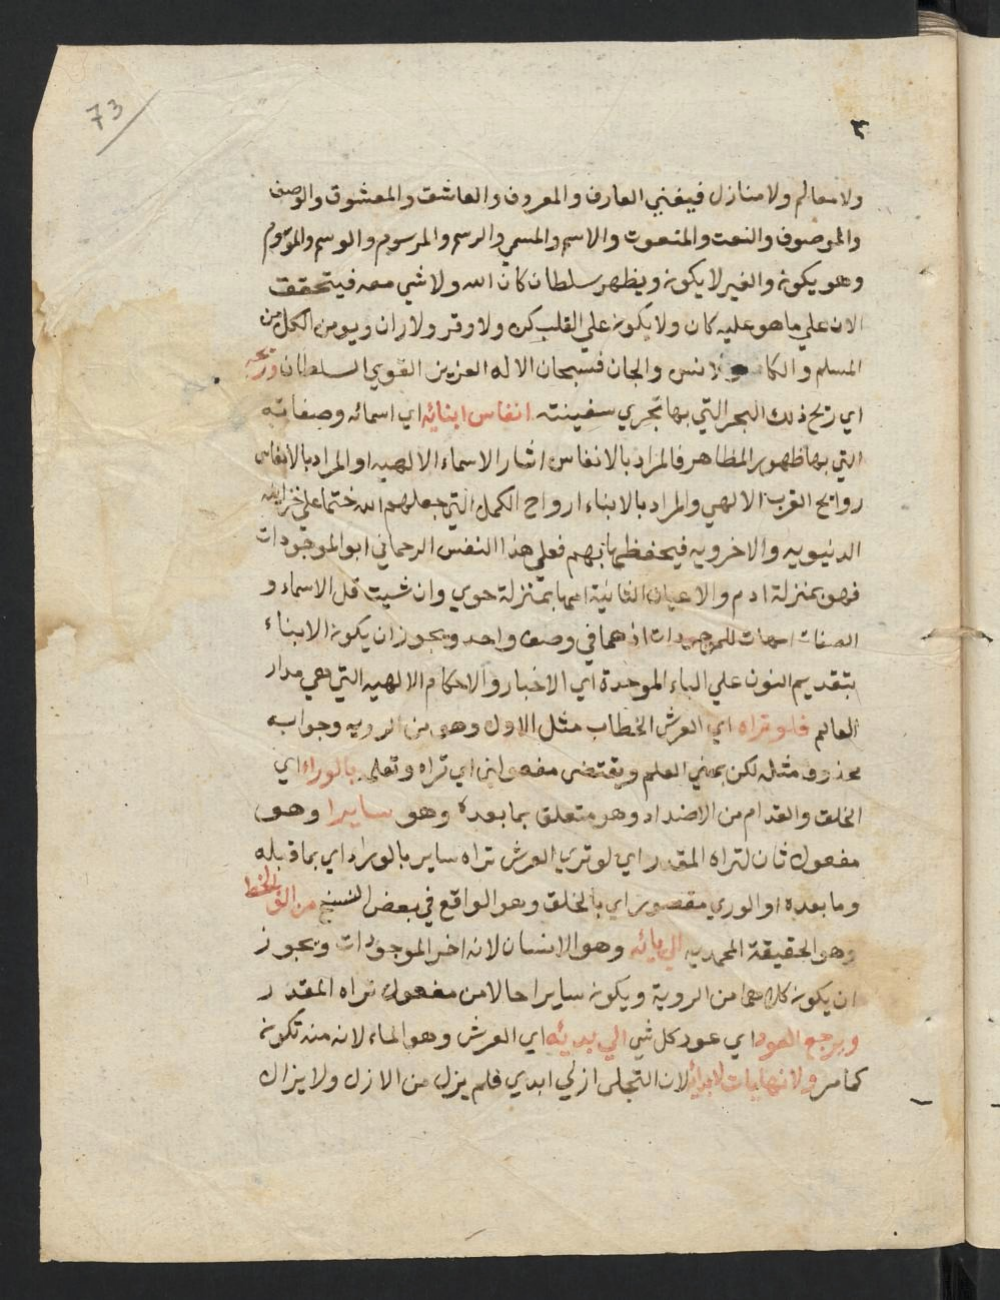 73
٣
ولا معالم ولا منازل فيفني العارف والمعروف والعاشق والمعشوق والوصف
والموصوف والنعت والمنعوت والاسم والمسمي والرسم والمرسوم والوسم والموسوم
وهو يكون والغير لا يكون ويظهر سلطان كان الله ولا شي معه فيتحقق
الان علي ما هو عليه كان ولا يكون علي القلب كن ولا وقر ولا ران ويومن الكل من
المسلم والكافر والانس والجان فسبحان الاله العزيز القوي السلطان وريحه
اي ريح ذلك البحر التي بها تجري سفينته انفاس ابنائه اي اسمائه وصفاته
التي بها ظهور المظاهر فالمراد بالانفاس اثار الاسماء الالهيه او المراد بالانفاس
روايح القرب الالهي والمراد بالابناء ارواح الكمل التي جعلهم الله ختما علي خزاينه
الدنيويه والاخرويه فيحفظها بهم فعلي هذا النفس الرحماني ابو الموجودات
فهو بمنزلة ادم والاعيان الثابتة امها بمنزلة حوي وان شيت قل الاسماء و
الصفات امهات للموجودات اذ هما في وصف واحد ويجوز ان يكون الابناء
بتقديم النون علي الباء الموحدة اي الاخبار والاحكام الالهيه التي هي مدار
العالم فلو تراه اي العرش الخطاب مثل الاول وهو من الرويه وجوابه
محذوف مثله لكن بمعني العلم ويقتضي مفعولين اي تراه وتعلمه بالوراء اي
الخلق والقدام من الاضداد وهو متعلق بما بعده وهو سايرا وهو
مفعول ثان لتراه المقدر اي لو تري العرش تراه ساير بالوراء اي بما قبله
وما بعده او الوري مقصور اي بالخلق وهو الواقع في بعض النسخ من الف الخط
وهو الحقيقة المحمديه الي يائه وهو الانسان لانه اخر الموجودات ويجوز
ان يكون كلاهما من الروية ويكون سايرا حالا من مفعول تراه المقدر
ويرجع العود اي عود كل شي الي بديه اي العرش وهو الماء لانه منه تكون
كما مر ولا نهايات لابدائه لان التجلي ازلي ابدي فلم يزل من الازل ولا يزال